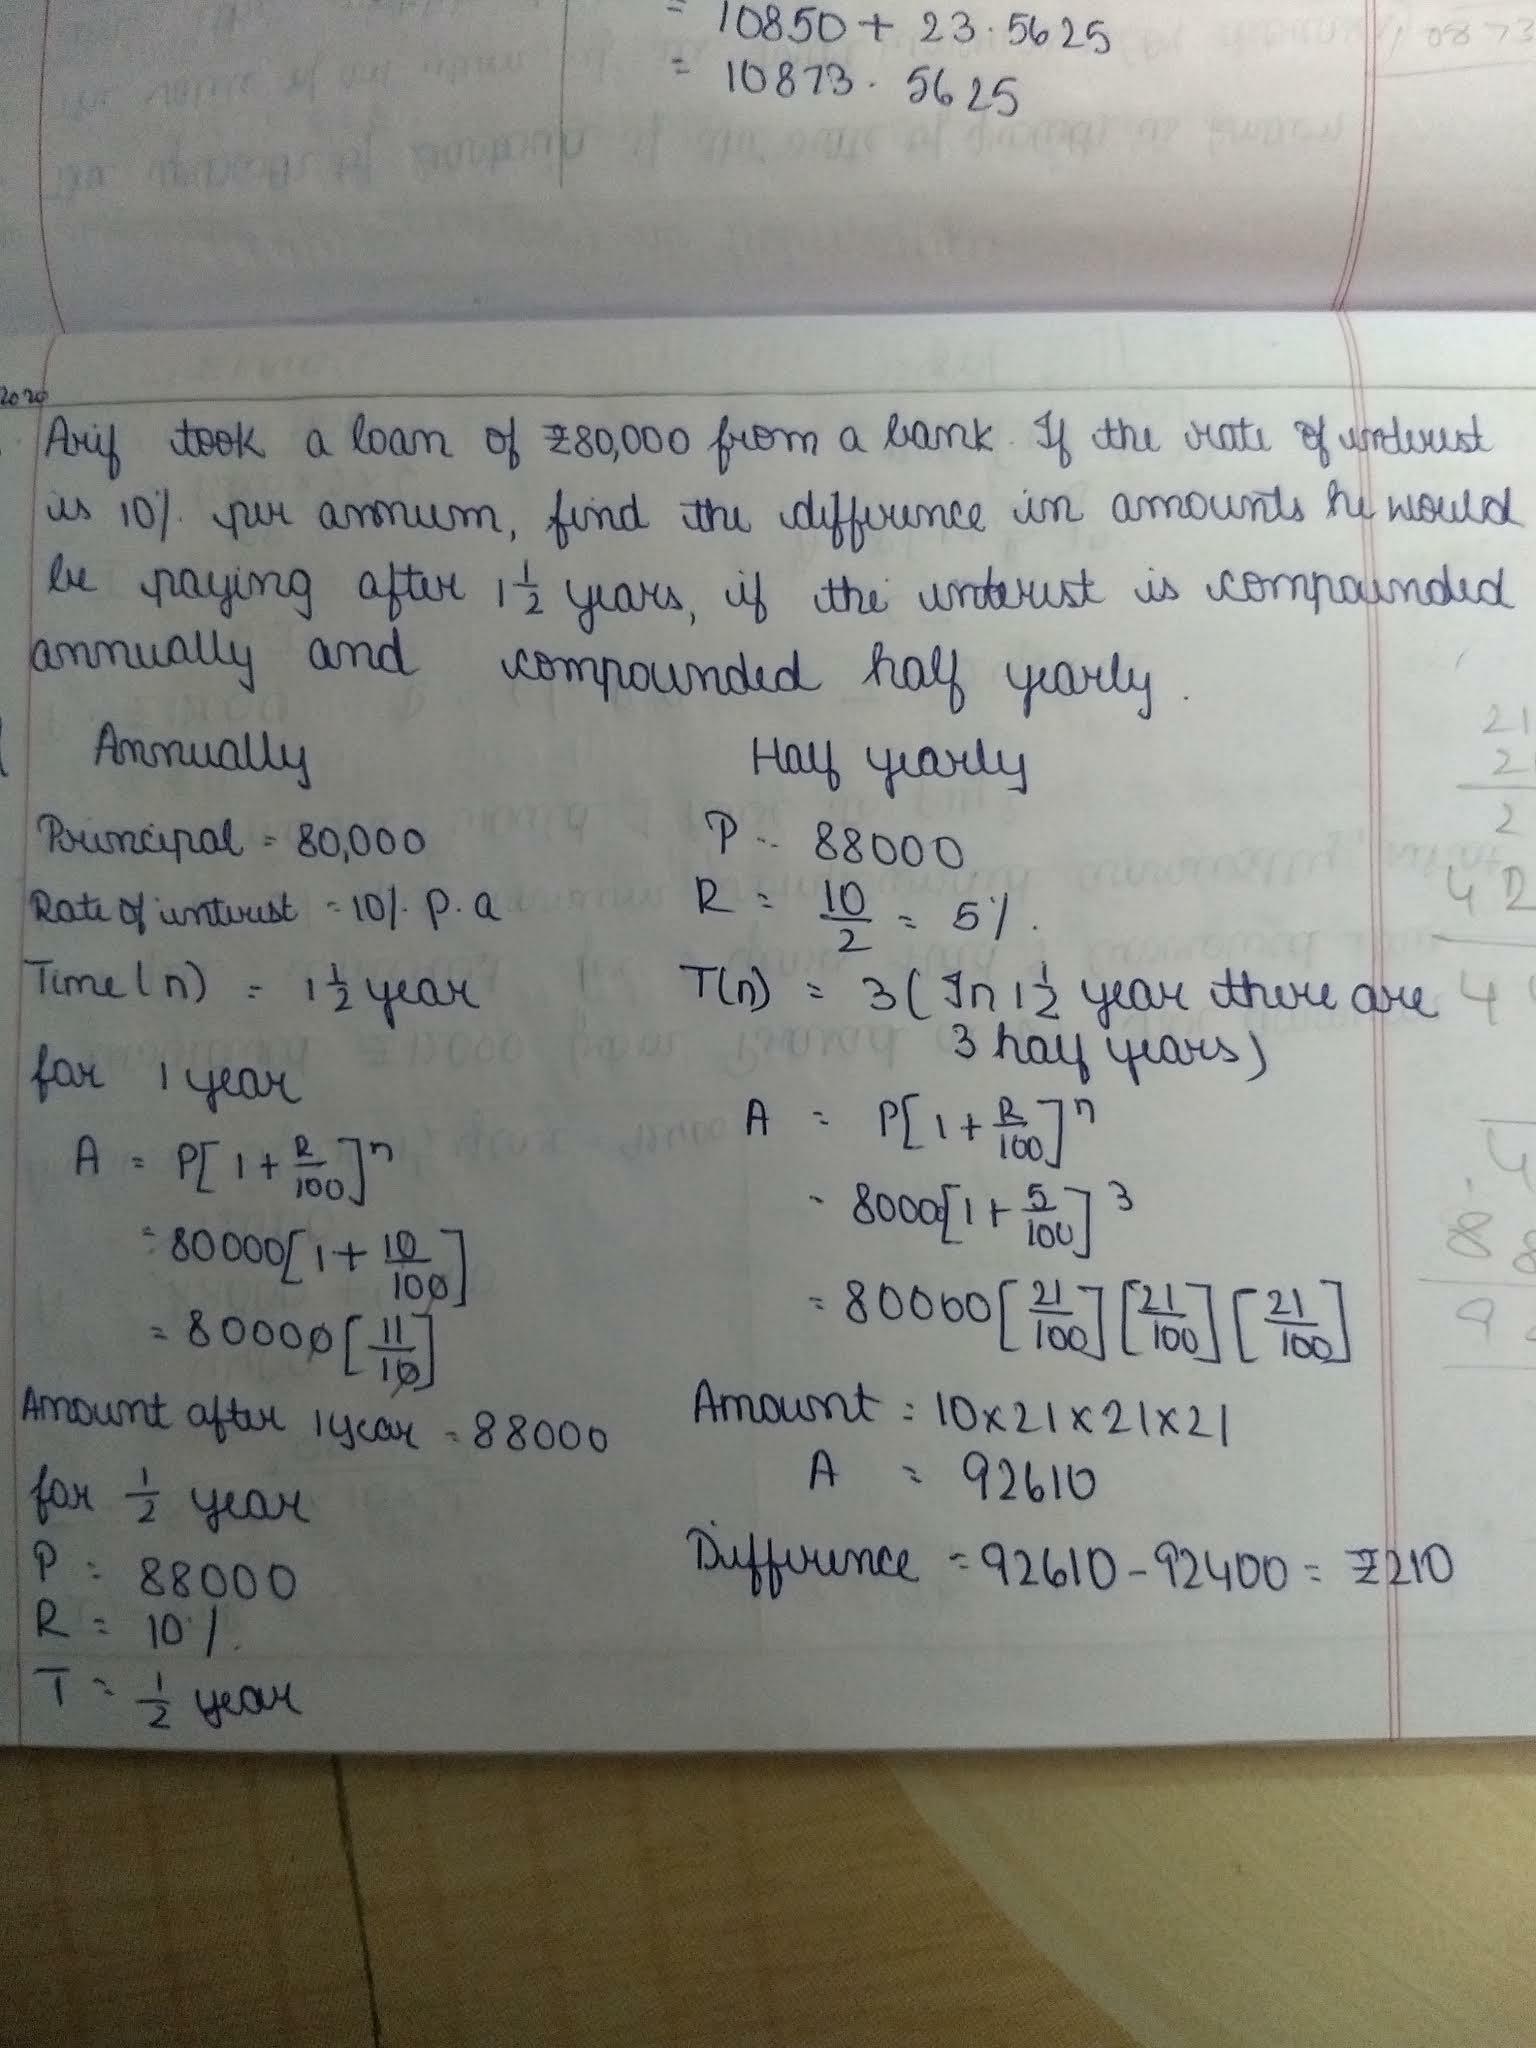 = 10850 + 23.5625
= 10873.5625
10873
2020
Arif took a loan of ₹80,000 from a bank. If the rate of interest
is 10% per annum, find the difference in amounts he would
be paying after 1 1/2 years, if the interest is compounded
annually and compounded half yearly.
Annually
Principal = 80,000
Rate of interest = 10% p.a
Time(n) = 1 1/2 year
for 1 year
A = P[1 + R/100]^n
= 80000[1 + 10/100]
= 80000[11/10]
Amount after 1 year = 88000
for 1/2 year
P = 88000
R = 10%
T = 1/2 year
Half yearly
P = 88000
R = 10/2 = 5%.
T(n) = 3 (In 1 1/2 year there are
3 half years)
A = P[1 + R/100]^n
= 8000[1 + 5/100]^3
= 80000[21/100][21/100][21/100]
Amount = 10x21x21x21
A = 92610
Difference = 92610 - 92400 = ₹210